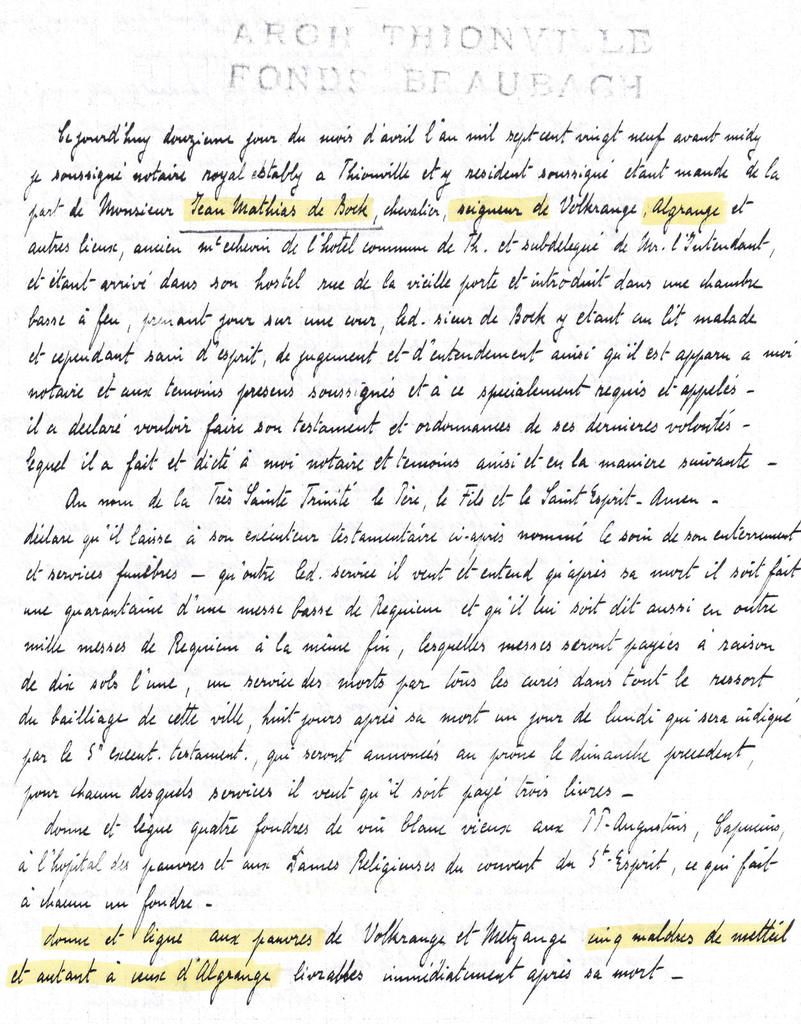 ARCH THIONVILLE
FONDS BEAUBACH
Cejourd'huy douzieme jour du mois d'avril l'an mil sept cent vingt neuf avant midy
je soussigné notaire royal establÿ a Thionville et y resident soussigné etant mandé de la
part de Monsieur Jean Mathias de Bock, chevalier, seigneur de Volkrange, Algrange et
autres lieux, ancien mtre echevin de l'hôtel commun de Th. et subdelegué de Mr. l'Intendant,
et étant arrivé dans son hostel rue de la vieille porte et introduit dans une chambre
basse à feu, prenant jour sur une cour, led. sieur de Bock y etant au lit malade
et cependant sain d'esprit, de jugement et d'entendement ainsi qu'il est apparu a moi
notaire et aux temoins presens soussignés et à ce specialement requis et appelés –
il a declaré vouloir faire son testament et ordonnances de ses dernieres volontés –
lequel il a fait et dicté à moi notaire et temoins ainsi et en la maniere suivante –
Au nom de la Très Sainte Trinité le Père, le Fils et le Saint Esprit – Amen –
déclare qu'il laisse à son exécuteur testamentaire ci-après nommé le soin de son enterrement
et services funèbres – qu'outre led. service il veut et entend qu'après sa mort il soit fait
une quarantaine d'une messe basse de Requiem et qu'il lui soit dit aussi en outre
mille messes de Requiem à la même fin, lesquelles messes seront payées à raison
de dix sols l'une, un service des morts par tous les curés dans tout le ressort
du bailliage de cette ville, huit jours après sa mort un jour de lundi qui sera indiqué
par le Sr execut. testament., qui seront annoncés au prône le dimanche precedent,
pour chacun desquels services il veut qu'il soit payé trois livres –
donne et lègue quatre foudres de vin blanc vieux aux PP. Augustins, Capucins,
à l'hopital des pauvres et aux Dames Religieuses du couvent du St-Esprit, ce qui fait
à chacun un foudre –
donne et lègue aux pauvres de Volkrange et Metzange cinq maldres de metteil
et autant à ceux d'Algrange livrables immédiatement après sa mort –